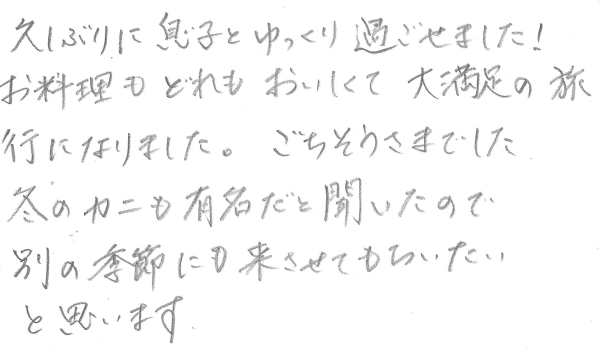 久しぶりに息子とゆっくり過ごせました!
お料理もどれもおいしくて大満足の旅
行になりました。ごちそうさまでした
冬のカニも有名だと聞いたので
別の季節にも来させてもらいたい
と思います